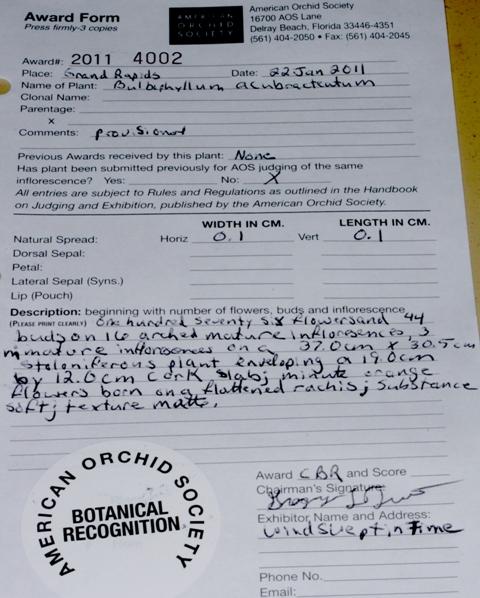 Award Form
Press firmly-3 copies
AMERICAN
ORCHID
SOCIETY
American Orchid Society
16700 AOS Lane
Delray Beach, Florida 33446-4351
(561) 404-2050 • Fax: (561) 404-2045
Award#: 2011 4002
Place: Grand Rapids Date: 22 Jan 2011
Name of Plant: Bulbophyllum acubractentum
Clonal Name:
Parentage:
x
Comments: provisional
Previous Awards received by this plant: None
Has plant been submitted previously for AOS judging of the same
inflorescence? Yes: No: X
All entries are subject to Rules and Regulations as outlined in the Handbook
on Judging and Exhibition, published by the American Orchid Society.
WIDTH IN CM. LENGTH IN CM.
Natural Spread: Horiz 0.1 Vert 0.1
Dorsal Sepal:
Petal:
Lateral Sepal (Syns.)
Lip (Pouch)
Description: beginning with number of flowers, buds and inflorescence
(PLEASE PRINT CLEARLY) One hundred seventy six flowers and 44
buds on 16 arched mature infloresences, 3
immature infloresences on a 37.0cm x 30.5cm
stoloniferous plant enveloping a 19.0cm
by 12.0cm cork slab; minute orange
flowers born on a flattened rachis; substance
soft; texture matte.
AMERICAN ORCHID SOCIETY
BOTANICAL
RECOGNITION
Award CBR and Score
Chairman's Signature
Exhibitor Name and Address:
Windswept in Time
Phone No.
Email: